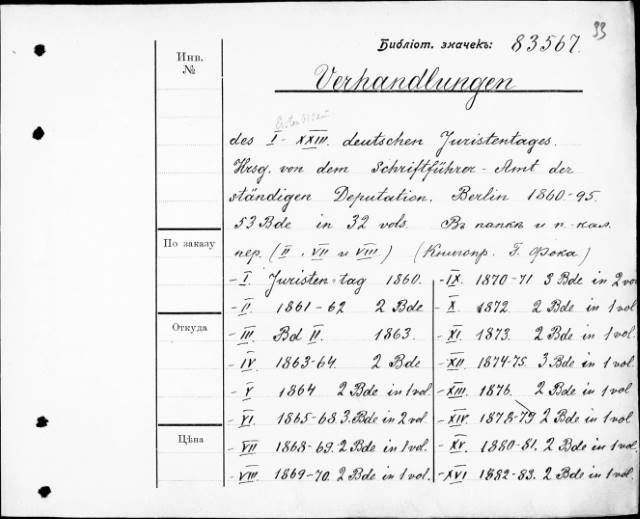 33
Библіот. значекъ: 83567.
Инв.
№
Verhandlungen
des I - XXIII. deutschen Juristentages.
Hrsg. von dem Schriftführer-Amt der
ständigen Deputation. Berlin 1860-95.
53 Bde in 32 vols. Въ папкѣ и п.-кал.
пер. (II, VII и VIII.) (Книгопр. Г. Фока)
По заказу
Откуда
Цѣна
- I. Juristen-tag 1860.
- II 1861-62 2 Bde
- III Bd II. 1863.
- IV. 1863-64. 2 Bde
- V 1864 2 Bde in 1 vol.
- VI. 1865-68. 3. Bde in 2 vol
- VII 1868-69. 2 Bde in 1 vol.
- VIII. 1869-70. 2 Bde in 1 vol.
- IX. 1870-71 3 Bde in 2 vol
- X. 1872. 2 Bde in 1 vol
- XI. 1873. 2 Bde in 1 vol
- XII 1874-75. 3 Bde in 1 vol.
- XIII. 1876. 2 Bde in 1 vol
- XIV. 1878-79 2 Bde in 1 vol
- XV. 1880-81. 2 Bde in 1 vol.
- XVI 1882-83. 2 Bde in 1 vol.